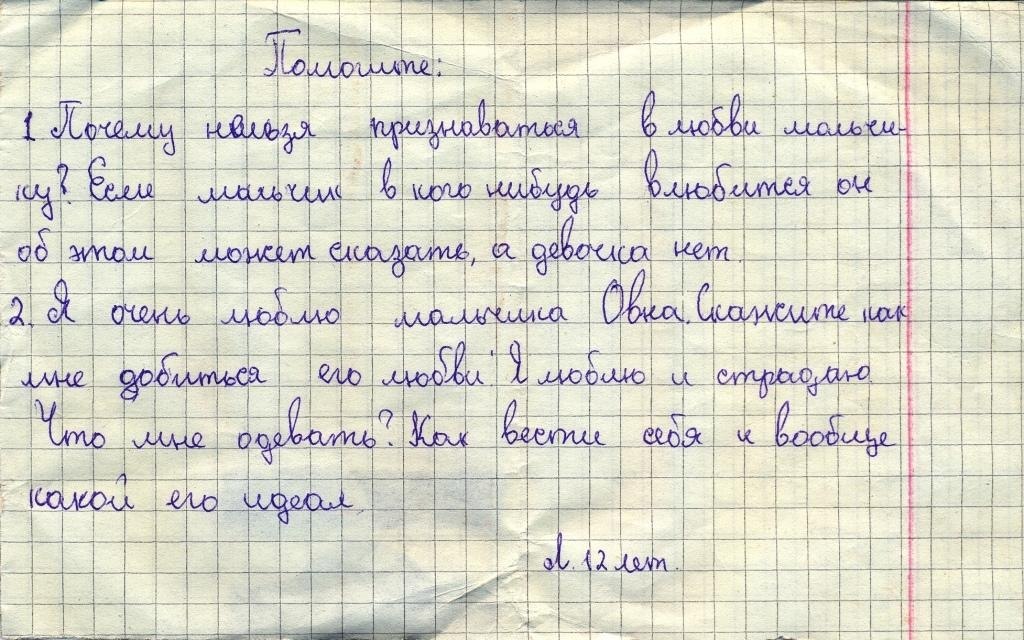 Помогите:
1 Почему нельзя признаваться в любви мальчи-
ку? Если мальчик в кого нибудь влюбится он
об этом может сказать, а девочка нет.
2. Я очень люблю мальчика Овна. Скажите как
мне добиться его любви! Я люблю и страдаю.
Что мне одевать? Как вести себя и вообще
какой его идеал.
Л. 12 лет.